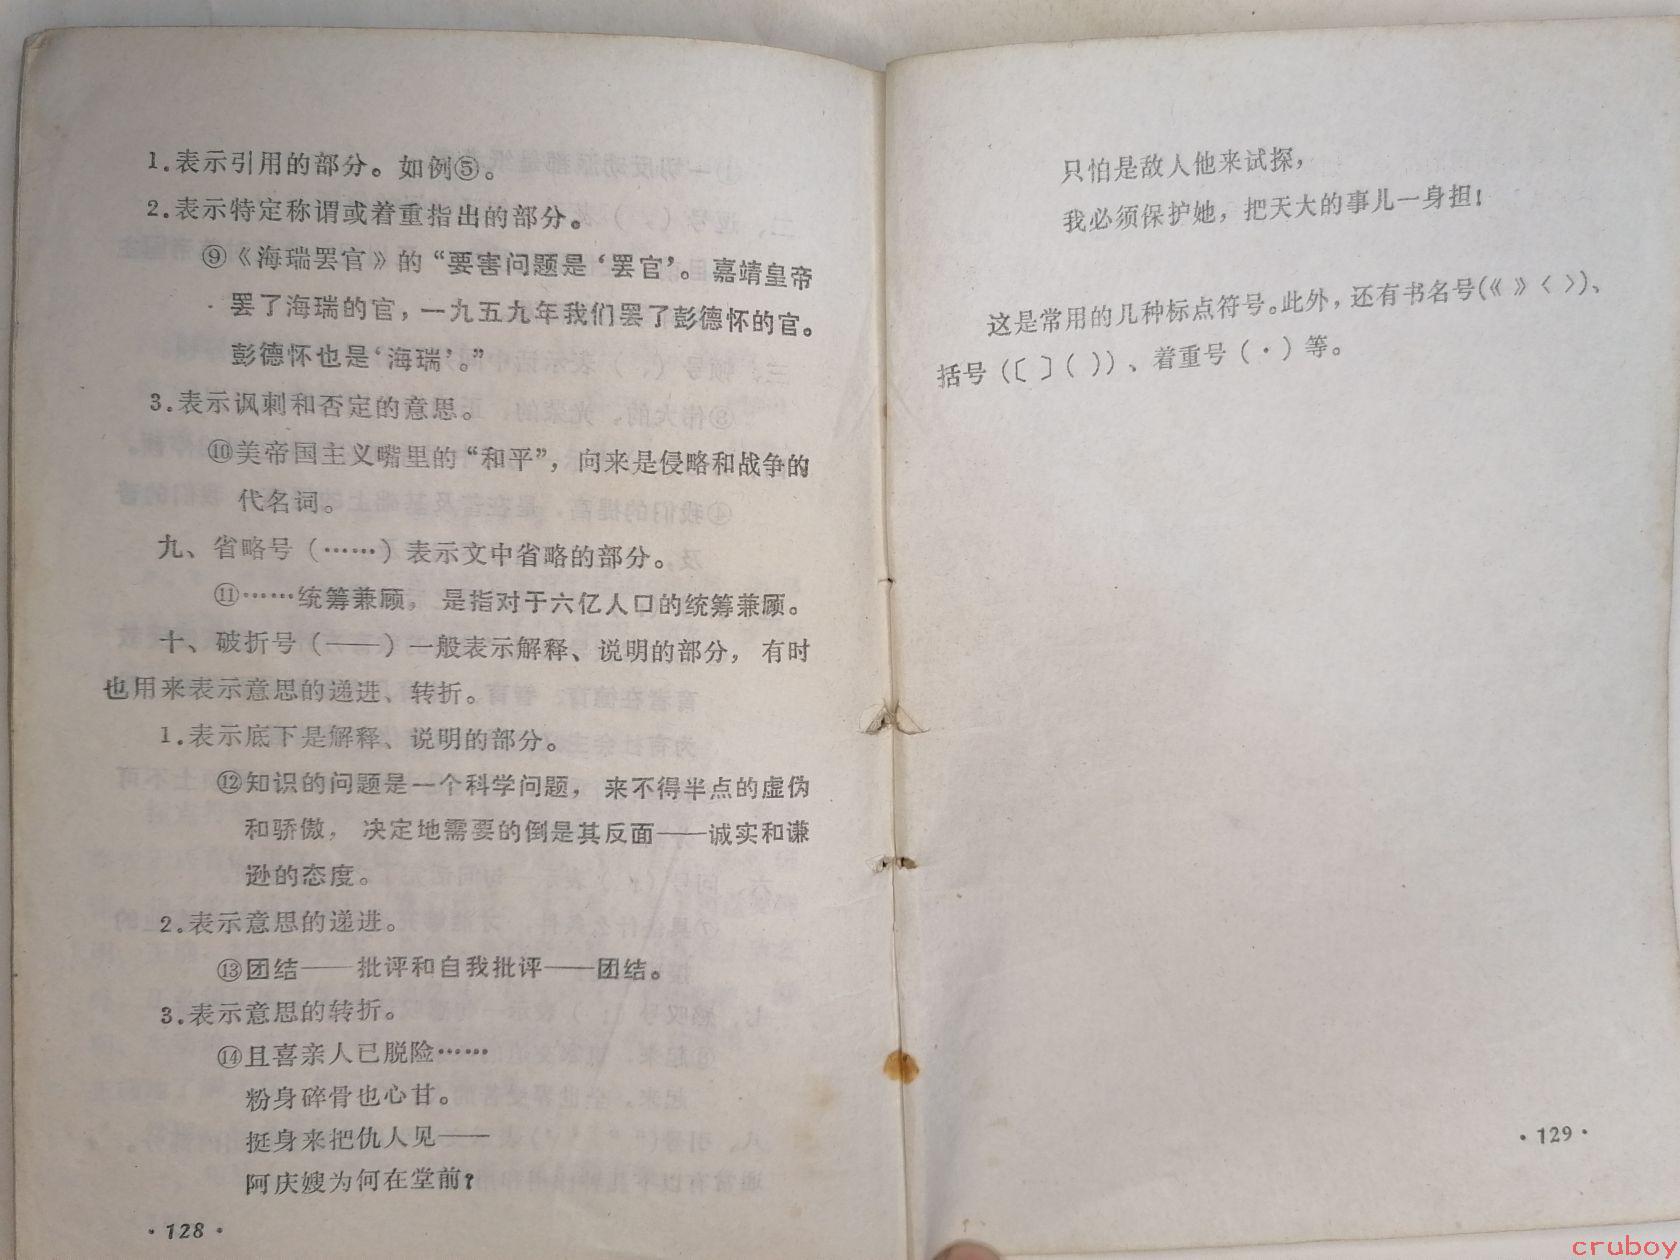 1.表示引用的部分。如例⑤。
2.表示特定称谓或着重指出的部分。
⑨《海瑞罢官》的“要害问题是‘罢官’。嘉靖皇帝
罢了海瑞的官，一九五九年我们罢了彭德怀的官。
彭德怀也是‘海瑞’。”
3.表示讽刺和否定的意思。
⑩美帝国主义嘴里的“和平”，向来是侵略和战争的
代名词。
九、省略号（……）表示文中省略的部分。
⑪……统筹兼顾，是指对于六亿人口的统筹兼顾。
十、破折号（——）一般表示解释、说明的部分，有时
也用来表示意思的递进、转折。
1.表示底下是解释、说明的部分。
⑫知识的问题是一个科学问题，来不得半点的虚伪
和骄傲，决定地需要的倒是其反面——诚实和谦
逊的态度。
2.表示意思的递进。
⑬团结——批评和自我批评——团结。
3.表示意思的转折。
⑭且喜亲人已脱险……
粉身碎骨也心甘。
挺身来把仇人见——
阿庆嫂为何在堂前？
·128·
只怕是敌人他来试探，
我必须保护她，把天大的事儿一身担！
这是常用的几种标点符号。此外，还有书名号（《 》〈 〉）、
括号（〔 〕（ ））、着重号（·）等。
·129·
cruboy